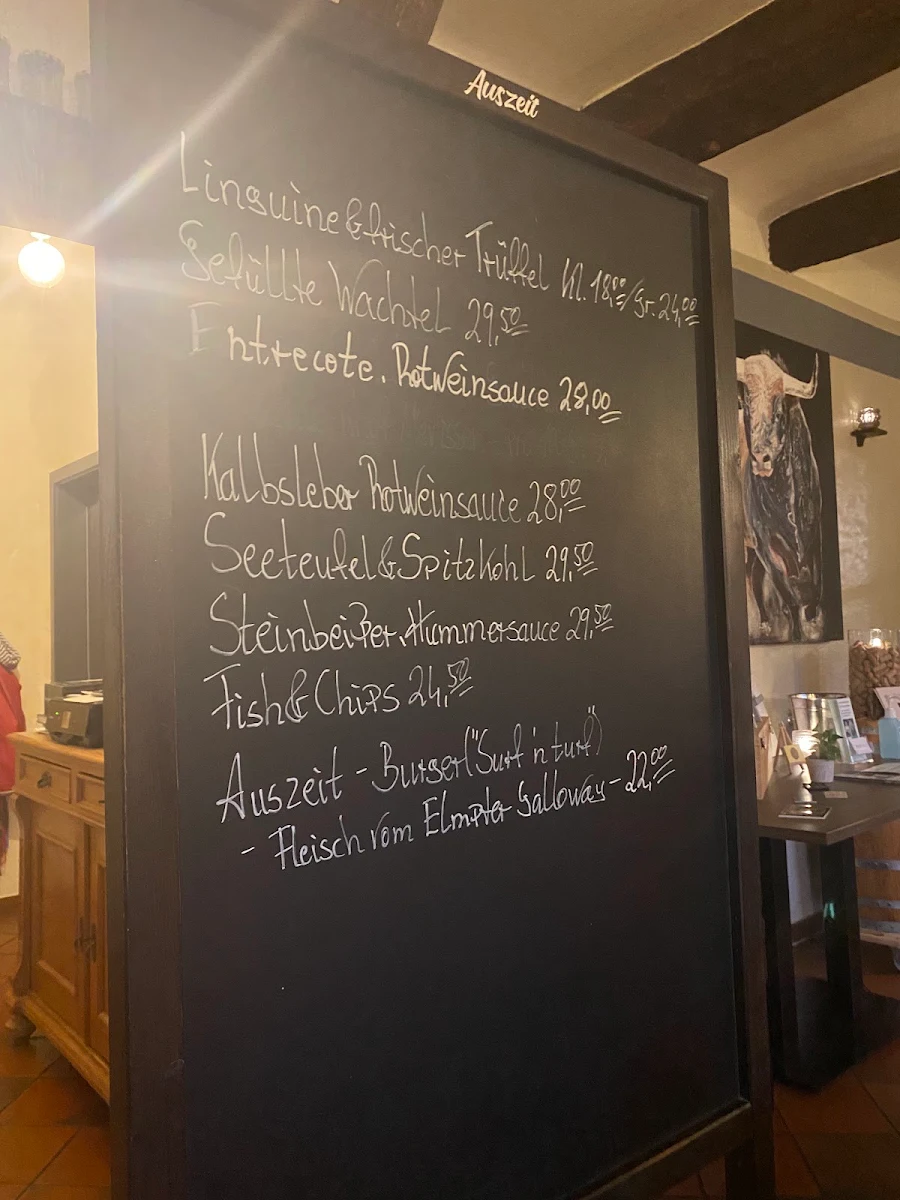 Auszeit
Linguine & frischer Trüffel kl. 18,00/gr. 24,00
Gefüllte Wachtel 29,50
Entrecote. Rotweinsauce 28,00
Kalbsleber Rotweinsauce 28,00
Seeteufel & Spitzkohl 29,50
Steinbeißer, Hummersauce 29,50
Fish & Chips 24,50
Auszeit - Burger ("Surf 'n turf")
- Fleisch vom Elmpter Galloway - 22,00